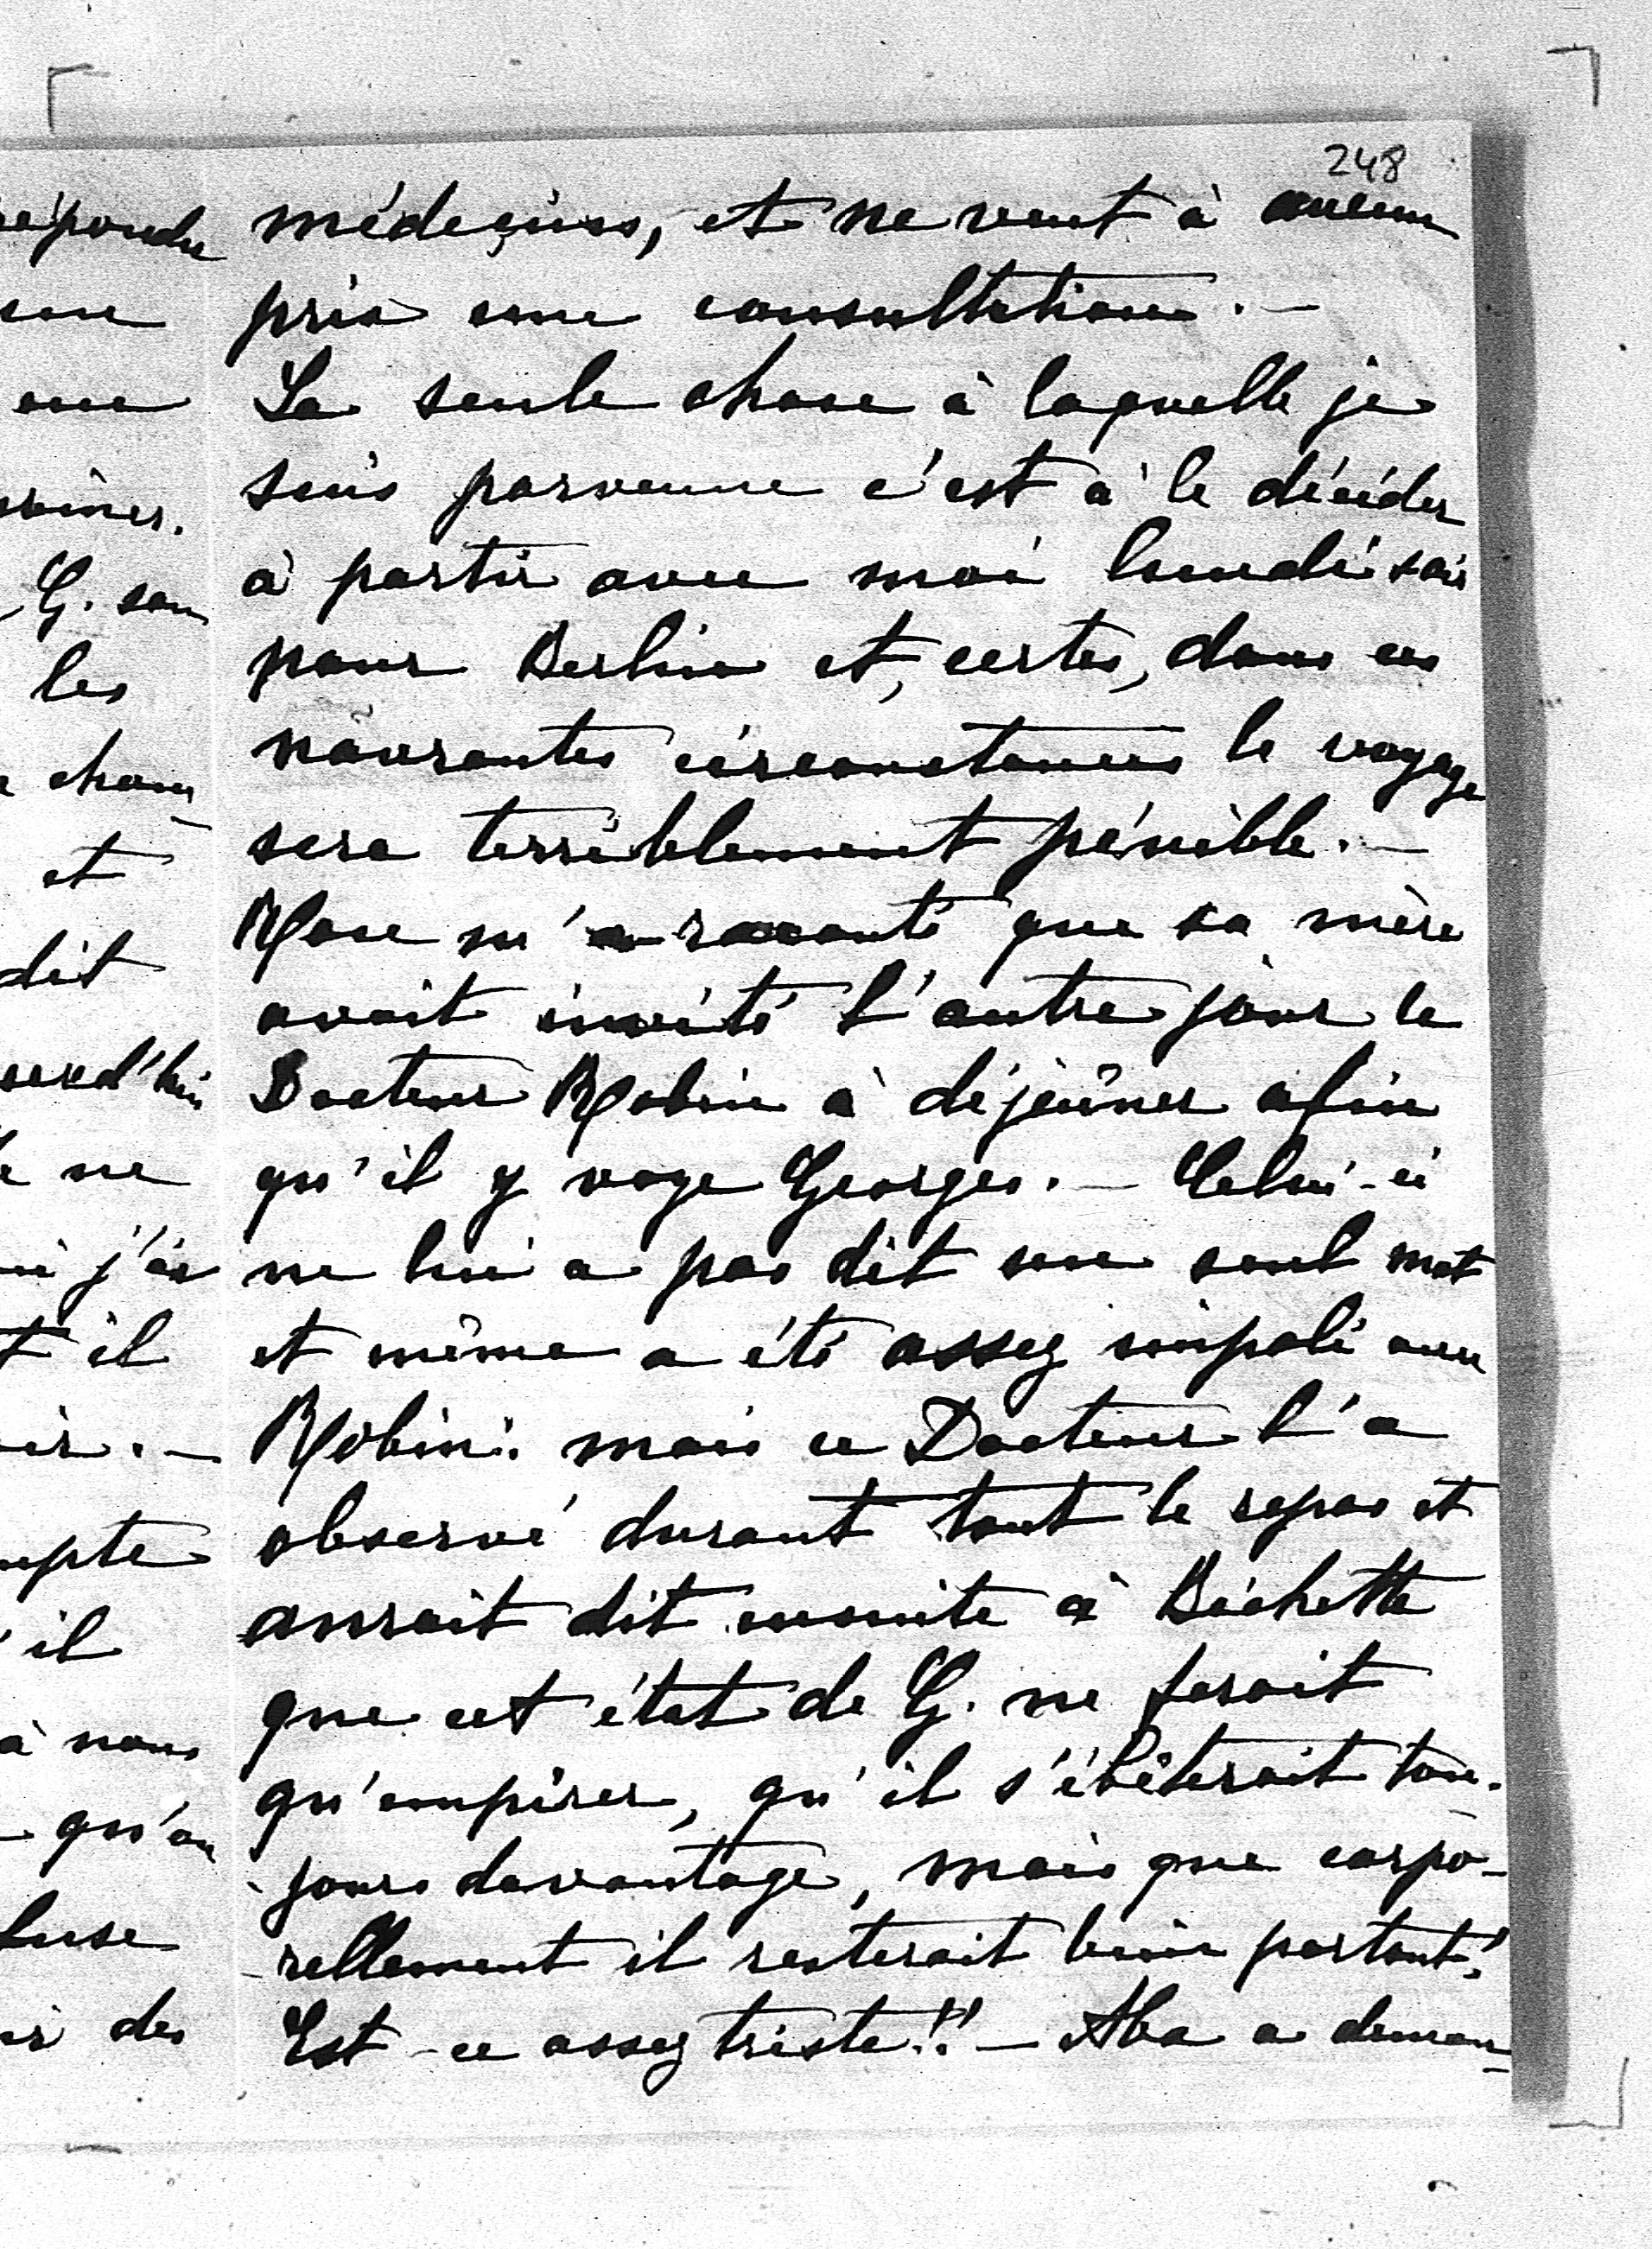 248
médecins, et ne veut à aucun
prix une consultation. —
La seule chose à laquelle je
suis parvenue c'est à le décider
à partir avec moi lundi soir
pour Berlin et, certes, dans ces
navrantes circonstances le voyage
sera terriblement pénible. —
Rose m'a raconté que sa mère
avait invité l'autre jour le
Docteur Robin à déjeûner afin
qu'il y voye Georges. — Celui-ci
ne lui a pas dit un seul mot
et même a été assez impoli avec
Robin: mais ce Docteur l'a
observé durant tout le repas et
aurait dit ensuite à Bichette
que cet état de G. ne ferait
qu'empirer, qu'il s'ébêterait tou-
jours davantage, mais que corpo-
-rellement il resterait bien portant!
Est-ce assez triste!! — Aba a deman-
répondu
une
G. son
les
et
dit
ne
il
il
à nous
qu'on
des